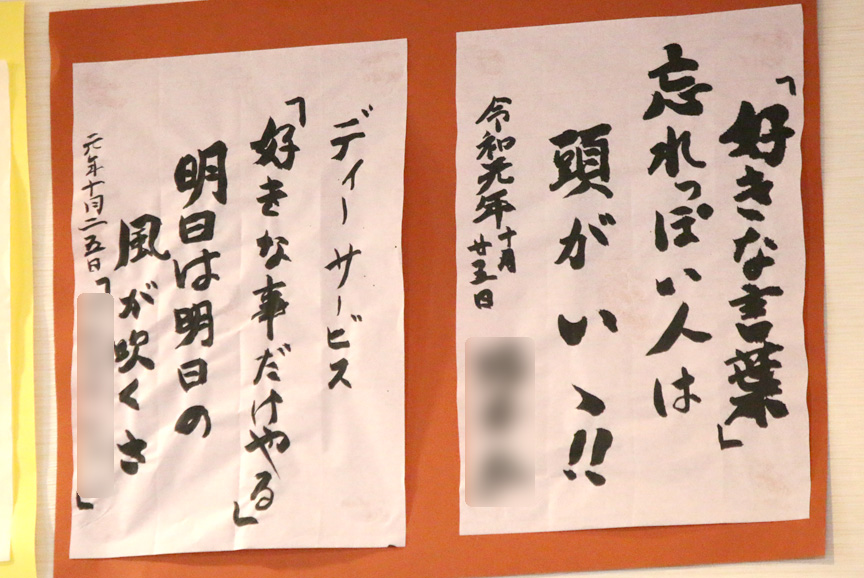 「好きな言葉」
忘れっぽい人は
頭がいゝ!!
令和元年十月廿五日
ディーサービス
「好きな事だけやる」
明日は明日の
風が吹くさ
元年十月二五日「 」